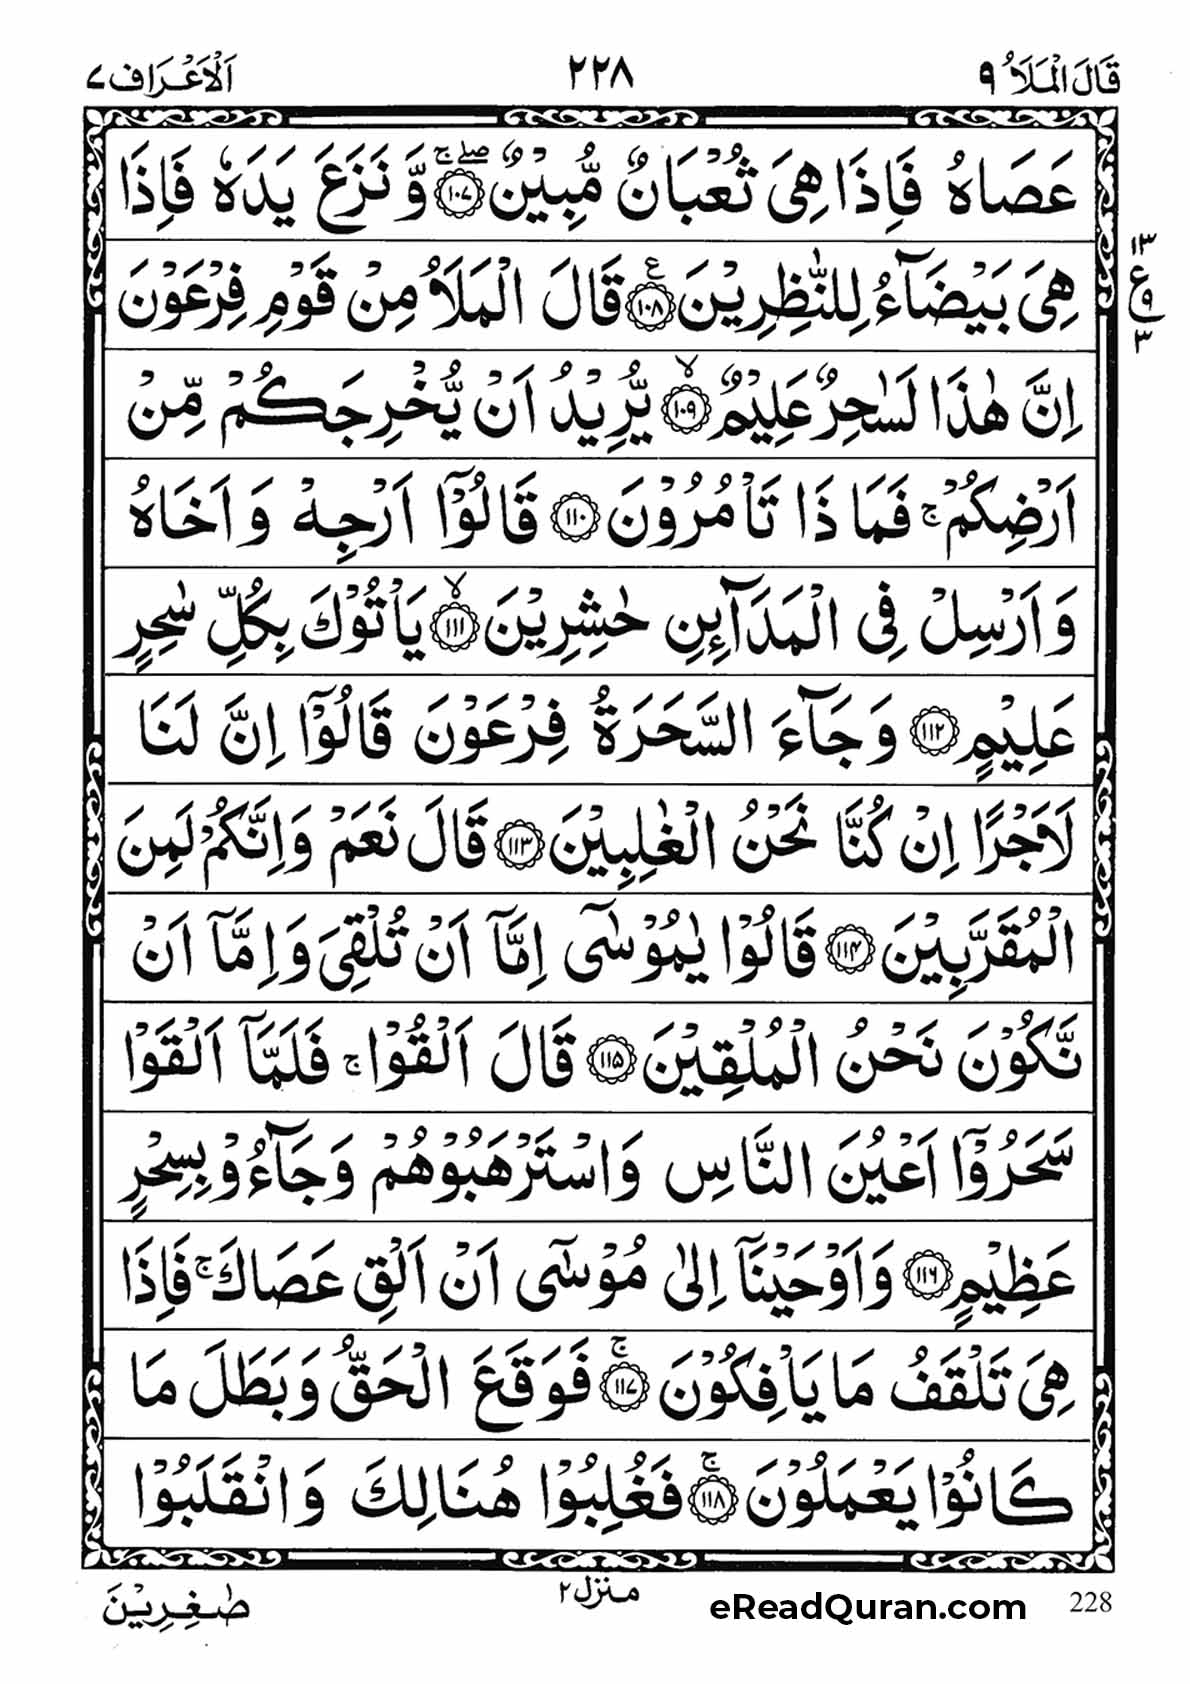 قَالَ الْمَلَاُ ٩ ٢٢٨ اَلْاَعْرَاف ٧
عَصَاهُ فَاِذَا هِيَ ثُعْبَانٌ مُّبِيْنٌ ۖۚ ﴿۱۰۷﴾ وَّ نَزَعَ يَدَهٗ فَاِذَا
هِيَ بَيْضَآءُ لِلنّٰظِرِيْنَ ﴿۱۰۸﴾ ع قَالَ الْمَلَاُ مِنْ قَوْمِ فِرْعَوْنَ
١٣ ع ٩ ٣
اِنَّ هٰذَا لَسٰحِرٌ عَلِيْمٌ ۙ ﴿۱۰۹﴾ يُّرِيْدُ اَنْ يُّخْرِجَكُمْ مِّنْ
اَرْضِكُمْ ۚ فَمَا ذَا تَاْمُرُوْنَ ﴿۱۱۰﴾ قَالُوْۤا اَرْجِهْ وَ اَخَاهُ
وَ اَرْسِلْ فِي الْمَدَآئِنِ حٰشِرِيْنَ ۙ ﴿۱۱۱﴾ يَاْتُوْكَ بِكُلِّ سٰحِرٍ
عَلِيْمٍ ﴿۱۱۲﴾ وَ جَآءَ السَّحَرَةُ فِرْعَوْنَ قَالُوْۤا اِنَّ لَنَا
لَاَجْرًا اِنْ كُنَّا نَحْنُ الْغٰلِبِيْنَ ﴿۱۱۳﴾ قَالَ نَعَمْ وَ اِنَّكُمْ لَمِنَ
الْمُقَرَّبِيْنَ ﴿۱۱۴﴾ قَالُوْا يٰمُوْسٰۤى اِمَّاۤ اَنْ تُلْقِيَ وَ اِمَّاۤ اَنْ
نَّكُوْنَ نَحْنُ الْمُلْقِيْنَ ﴿۱۱۵﴾ قَالَ اَلْقُوْا ۚ فَلَمَّاۤ اَلْقَوْا
سَحَرُوْۤا اَعْيُنَ النَّاسِ وَ اسْتَرْهَبُوْهُمْ وَ جَآءُوْ بِسِحْرٍ
عَظِيْمٍ ﴿۱۱۶﴾ وَ اَوْحَيْنَاۤ اِلٰى مُوْسٰۤى اَنْ اَلْقِ عَصَاكَ ۚ فَاِذَا
هِيَ تَلْقَفُ مَا يَاْفِكُوْنَ ۚ ﴿۱۱۷﴾ فَوَقَعَ الْحَقُّ وَ بَطَلَ مَا
كَانُوْا يَعْمَلُوْنَ ۚ ﴿۱۱۸﴾ فَغُلِبُوْا هُنَالِكَ وَ انْقَلَبُوْا
منزل ٢
صٰغِرِيْنَ
eReadQuran.com 228